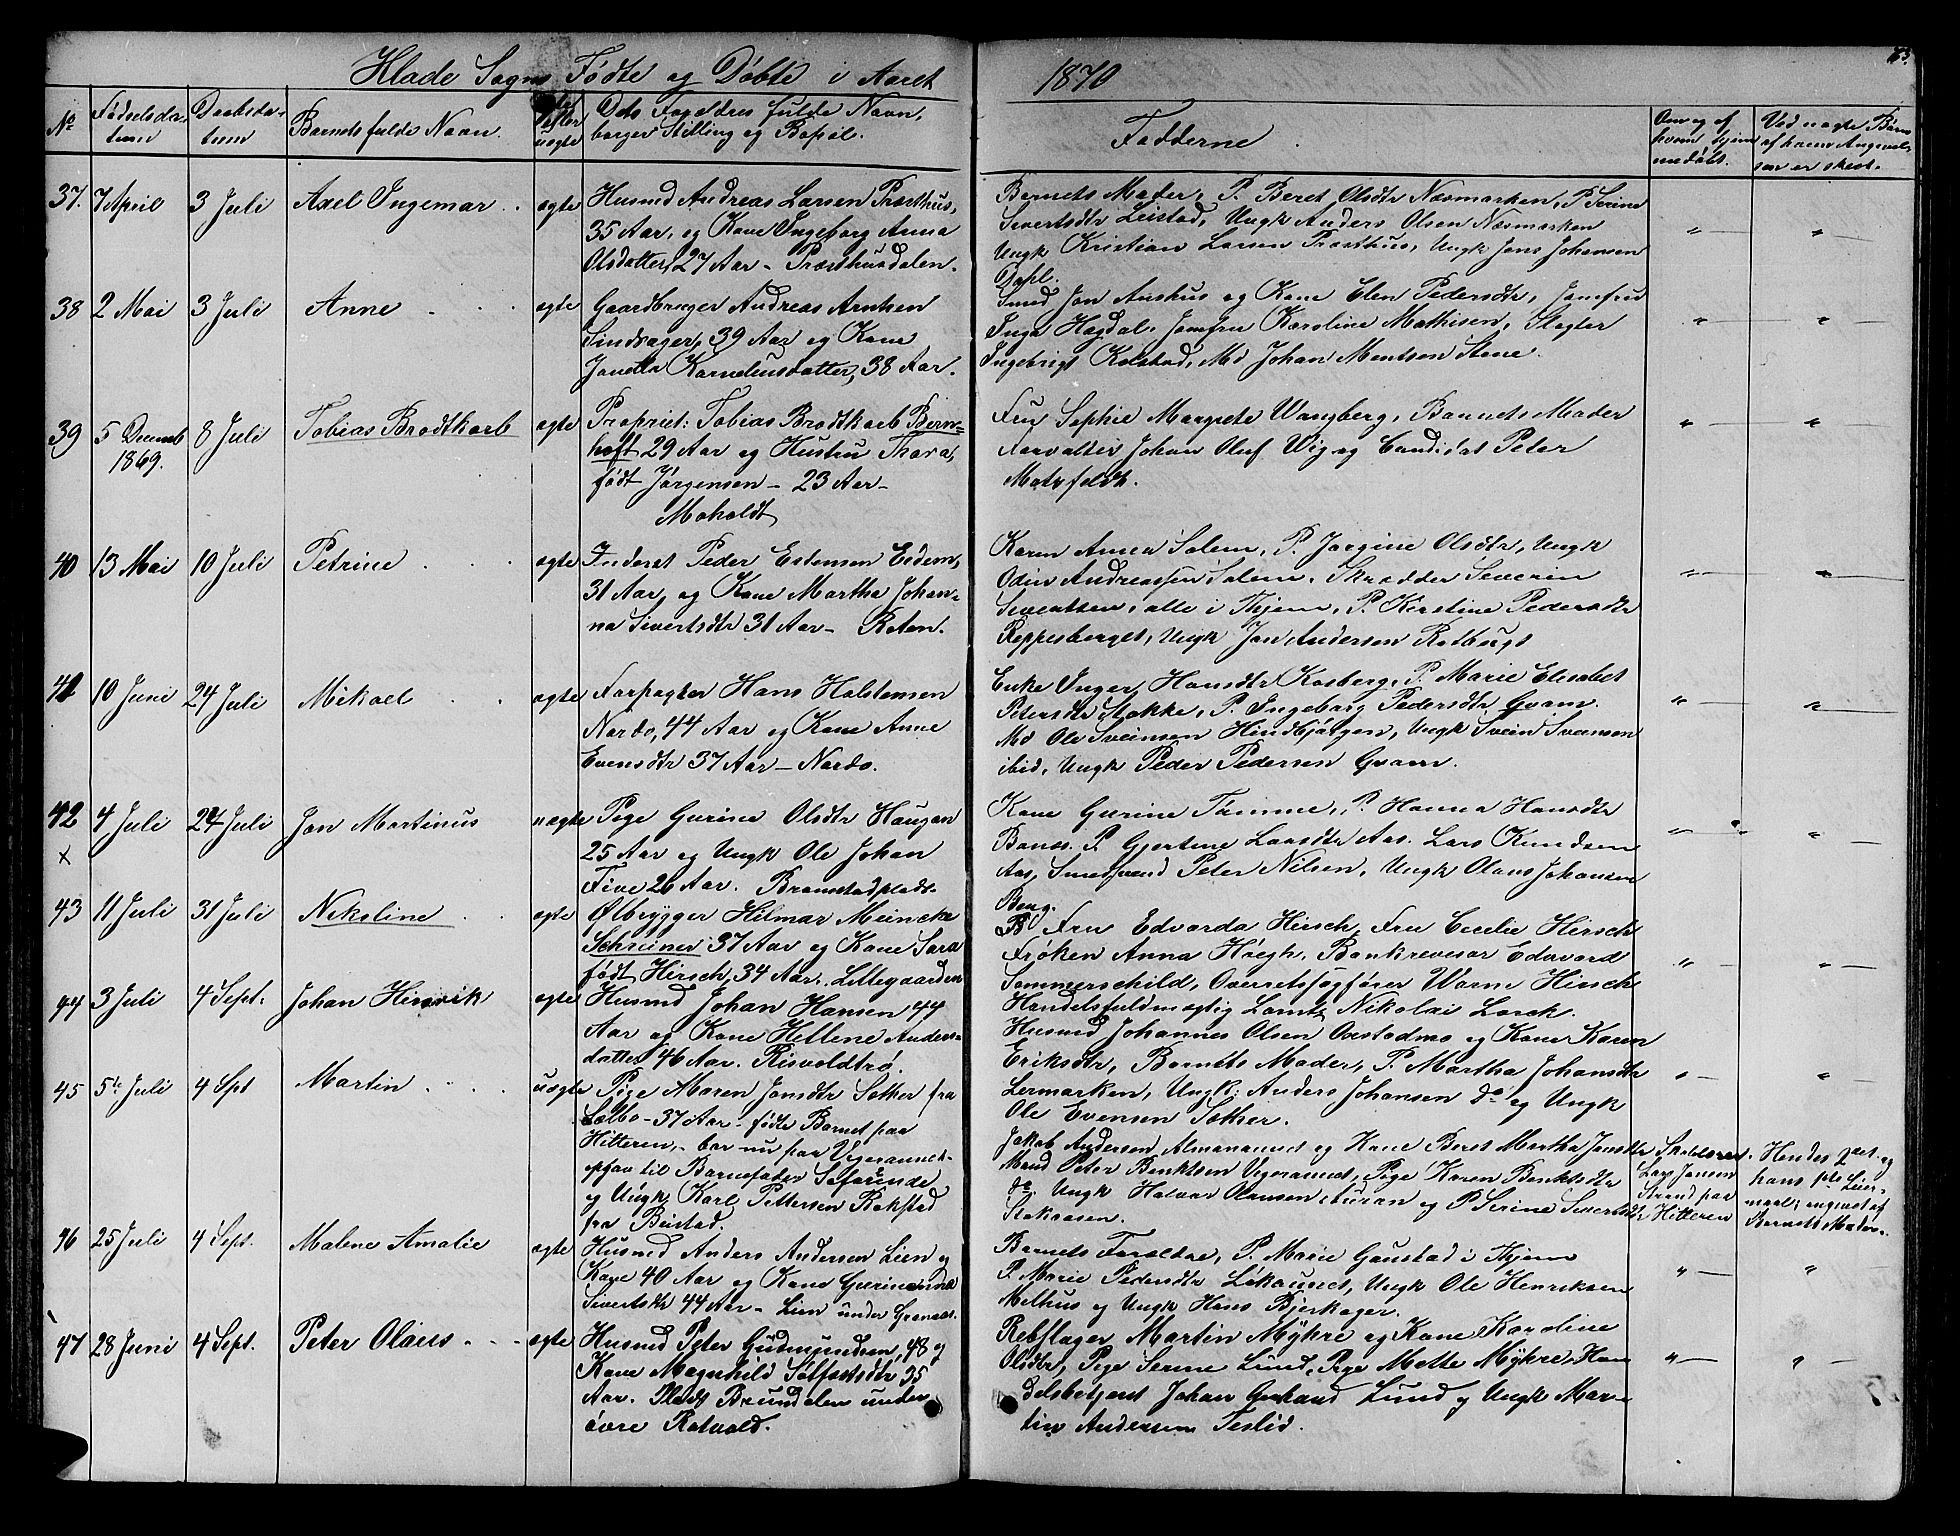 Hlade Sogn Fødte og Døbte i Aaret 1870
No
Fødselsda-
tum
Daabsda-
tum
Barnets fulde Navn.
ægte
eller
uægte
Dets Forældres fulde Navn,
borger Stilling og Bopæl.
Fadderne
Om og af
hvem hjem-
medøbt.
Ved uægte Børn
af hvem Angivel-
sen er skeet.
37. 7 April 3 Juli Axel Ingemar ægte
Husmd Andreas Larsen Præsthus,
35 Aar, og Kone Ingeborg Anna
Olsdatter, 27 Aar – Præsthusdalen.
Barnets Moder, P. Beret Olsdtr Næsmarken, P. Serine
Sivertsdtr Leistad, Ungk Anders Olsen Næsmarken
Ungk Kristian Larsen Præsthus, Ungk Jens Johansen
Dahl.
38 2 Mai 3 Juli Anne ægte
Gaardbruger Andreas Arntsen
39 Aar og Kone
38 Aar.
Smed Jon Aushus og Kone Elen Pedersdtr, Jomfru
Inga Hagdal, Jomfru Karoline Mathisen, Slagter
Ingebrigt Kolstad, Md Johan Mentsen Stene.
39 5 Decemb 1869. 8 Juli Tobias Brodtkorb ægte
Propriet: Tobias Brodtkorb Bern-
hoft 29 Aar og Hustru Thora,
født Jørgensen – 23 Aar –
Moholdt
Fru Sophie Margrete Wangberg, Barnets Moder
Forvalter Johan Oluf Wig og Candidat Peter
Motzfeldt.
40 13 Mai 10 Juli Petrine ægte
Inderst Peder Estensen Eidem,
31 Aar og Kone Martha Johan-
na Sivertsdtr 31 Aar – Roten.
Karen Anna Solem, P. Jørgine Olsdtr, Ungk
Odin Andreassen Solem, Skrædder Severin
Sivertsen, alle i Thjem, P. Kirstine Pedersdtr
Reppesberget, Ungk Jon Andersen
41 10 Juni 24 Juli Mikael ægte
Forpagter Hans Halstensen
Nardo, 44 Aar og Kone Anne
Evensdtr 37 Aar – Nardo.
Enke Inger Hansdtr Kosberg, P. Marie Elisabet
Petersdtr Stokke, P. Ingeborg Pedersdtr Gvam.
Md Ole Sveinsen Ungk Svein Sveinsen
ibid, Ungk Peder Pedersen Gvam.
42 4 Juli 24 Juli Jon Martinus uægte
x
Pige Gurine Olsdtr Haugan
25 Aar og Ungk Ole Johan
Five 26 Aar. Bromstadplads.
Kone Gurine Tømme, P. Hanna Hansdtr
P. Gjertine Larsdtr Aas. Lars Knudsen
Aas, Smedsvend Peter Nilsen, Ungk Olaus Johansen
Berg.
43 11 Juli 31 Juli Nikoline ægte
Ølbrygger Hilmar Meincke
Schreiner 37 Aar og Kone Sara
født Hirsch, 34 Aar. Lillegaarden
Fru Edvarda Hirsch, Fru Cecilie Hirsch
Frøken Anna Høegh, Bankrevisor Edvard
Sommerschild, Overretssagfører Hirsch
Handelsfuldmægtig Lorntz Nikolai Lorck.
44 3 Juli 4 Sept. Johan Hinrik ægte
Husmd Johan Hansen 44
Aar og Kone Hellene Anders-
datter 46 Aar. Risvoldtrø.
Husmd Johannes Olsen Overstadmo og Kone Karen
Eriksdtr, Barnets Moder, P. Martha Johansdtr
Lermarken, Ungk: Anders Johansen do og Ungk
Ole Evensen Solker.
45 5te Juli 4 Spt Martin uægte
Pige Maren Jonsdtr Solker fra
Sælbo – 37 Aar – fødte Barnet paa
Hitteren, – bor nu paa
til Barnefader
og Ungk Karl Pettersen Rokstad
fra Beistad.
Jakob Andersen og Kone Beret Martha Jonsdtr
Mand Peter Benktsen Pige Karen Benktsdtr
do. Ungk Halvor Olausen og P Serine Sivertsdtr
Stokaasen.
Lars Jansen
Strand paa
Hitteren
Hendes 2det og
hans 1ste Leier-
maal; angivet af
Barnets Moder.
46 25 Juli 4 Sept. Malene Amalie ægte
Husmd Anders Andersen Lien og
Kone 40 Aar og Kone Gurine
Sivertsdtr 44 Aar – Lien under
Barnets Forældre, P. Marie Gaustad i Thjem
P. Marie Pedersdtr Ungk Ole Henriksen
Melhus og Ungk Hans Bjerkager.
47 28 Juni 4 Sept. Peter Olaus ægte
Husmd Peter Gudmundsen, 48 og
Kone Magnhild Solfæstsdtr 35
Aar. Plads Brundalen under
øvre Rotvold.
Rebslager Martin Myhre og Kone Karoline
Olsdtr, Pige Serine Lund, Pige Mette Myhre, Han-
delsbetjent Johan Lund og Ungk Mar-
tin Andersen Teslid.